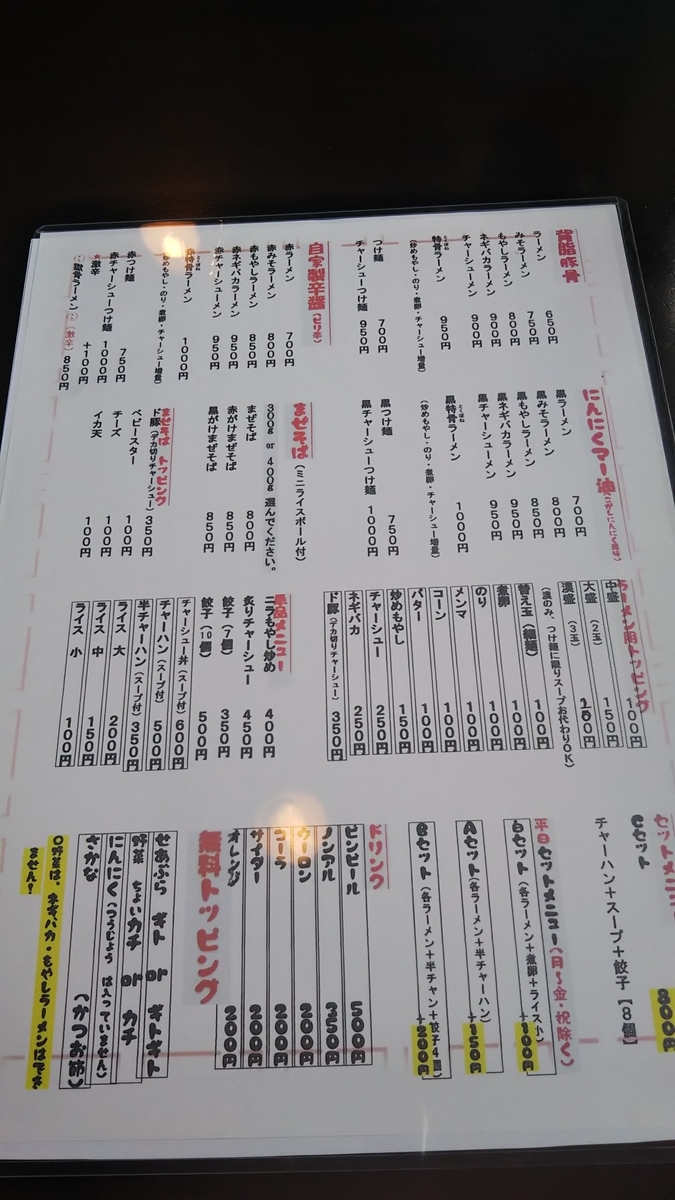 背脂豚骨
ラーメン 650円
みそラーメン 750円
もやしラーメン 800円
ネギバカラーメン 900円
チャーシューメン 900円
特骨ラーメン 950円
(炒めもやし・のり・煮卵・チャーシュー増量)
つけ麺 700円
チャーシューつけ麺 950円
自家製辛醤(ピリ辛)
赤ラーメン 700円
赤みそラーメン 800円
赤もやしラーメン 850円
赤ネギバカラーメン 950円
赤チャーシューメン 950円
赤特骨ラーメン 1000円
(炒めもやし・のり・煮卵・チャーシュー増量)
赤つけ麺 750円
赤チャーシューつけ麺 1000円
激辛 +100円
獄骨ラーメン (激辛) 850円
にんにくマー油(こがしにんにく風味)
黒ラーメン 700円
黒みそラーメン 800円
黒もやしラーメン 850円
黒ネギバカラーメン 950円
黒チャーシューメン 950円
黒特骨ラーメン 1000円
(炒めもやし・のり・煮卵・チャーシュー増量)
黒つけ麺 750円
黒チャーシューつけ麺 1000円
まぜそば(ミニライスボール付)
300g or 400g 選んでください。
まぜそば 800円
赤がけまぜそば 850円
黒がけまぜそば 850円
まぜそば トッピング
ド豚(デカ切りチャーシュー) 350円
ベビースター 100円
チーズ 100円
イカ天 100円
ラーメン用トッピング
中盛 100円
大盛 (2玉) 150円
漢盛 (3玉) 200円
(漢のみ、つけ麺に限りスープお代わりOK)
替え玉(細麺) 100円
煮卵 100円
のり 100円
メンマ 100円
コーン 100円
バター 100円
炒めもやし 150円
チャーシュー 250円
ネギバカ 250円
ド豚(デカ切りチャーシュー) 350円
単品メニュー
ニラもやし炒め 400円
炙りチャーシュー 450円
餃子(7個) 350円
餃子(10個) 500円
チャーシュー丼(スープ付) 600円
チャーハン(スープ付) 500円
半チャーハン(スープ付) 350円
ライス 大 200円
ライス 中 150円
ライス 小 100円
セットメニュー
Cセット 800円
チャーハン+スープ+餃子【8個】
平日セットメニュー(月~金・祝除く)
6セット(各ラーメン+煮卵+ライス小) +100円
Aセット(各ラーメン+半チャーハン) +150円
Bセット(各ラーメン+半チャン+餃子4個) +200円
ドリンク
ビンビール 500円
ノンアル 350円
ウーロン 200円
コーラ 200円
サイダー 200円
オレンジ 200円
無料トッピング
せあぶら ギト or ギトギト
野菜 ちょいカチ or カチ
にんにく(つうじょう は入っていません)
さかな (かつお節)
○野菜は、ネギバカ・もやしラーメンはでき
ません!